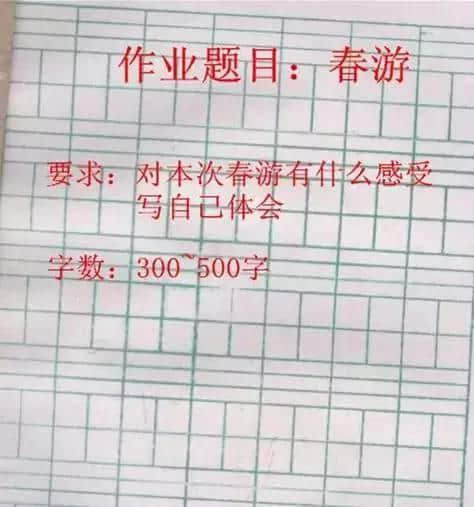 作业题目：春游
要求：对本次春游有什么感受
写自己体会
字数：300~500字